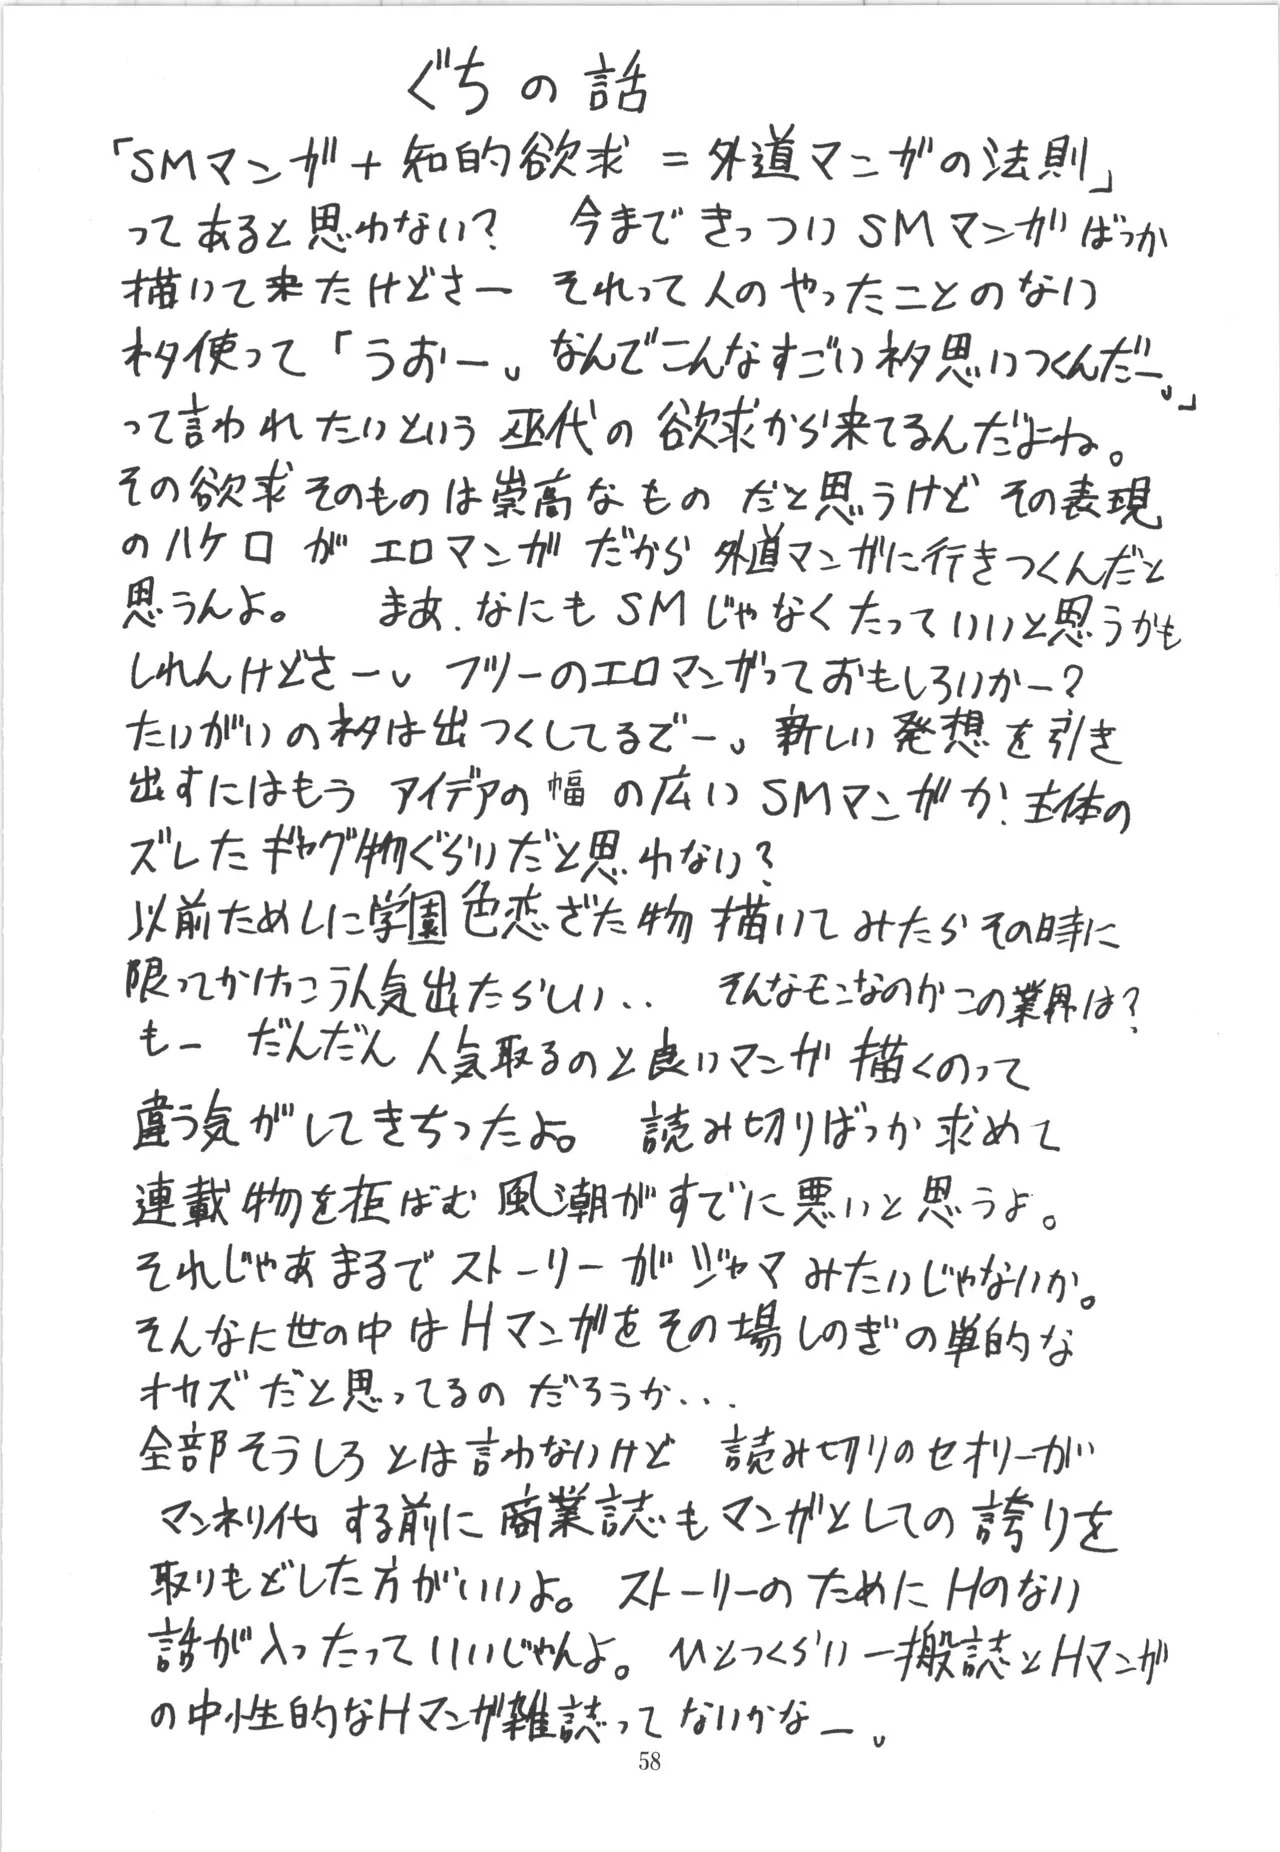 ぐちの話
「SMマンガ+知的欲求=外道マンガの法則」
ってあると思わない? 今まできっついSMマンガばっか
描いて来たけどさー それって人のやったことのない
ネタ使って「うおー、なんでこんなすごいネタ思いつくんだー、」
って言われたいという 巫代の欲求から来てるんだよね。
その欲求そのものは崇高なもの だと思うけど その表現
のハケ口 が エロマンガ だから 外道マンガに行きつくんだと
思うんよ。 まあ、なにもSMじゃなくたっていいと思うかも
しれんけどさー、 フツーのエロマンガっておもしろいかー?
たいがいのネタは出つくしてるでー、新しい発想を引き
出すにはもう アイデアの幅の広いSMマンガか、主体の
ズレたギャグ物ぐらいだと思わない?
以前ためしに学園色恋ざた物描いてみたらその時に
限ってかけっこう人気出たらしい‥ そんなモンなのかこの業界は?
もー だんだん人気取るのと良いマンガ描くのって
違う気がしてきちったよ。 読み切りばっか求めて
連載物を拒ばむ風潮がすでに悪いと思うよ。
それじゃあまるでストーリーがジャマみたいじゃないか。
そんなに世の中はHマンガをその場しのぎの単的な
オカズだと思ってるのだろうか...
全部そうしろとは言わないけど 読み切りのセオリーが
マンネリ化する前に商業誌もマンガとしての誇りを
取りもどした方がいいよ。ストーリーのためにHのない
話が入ったっていいじゃんよ。ひとつくらい一搬誌とHマンガ
の中性的なHマンガ雑誌ってないかなー、
58